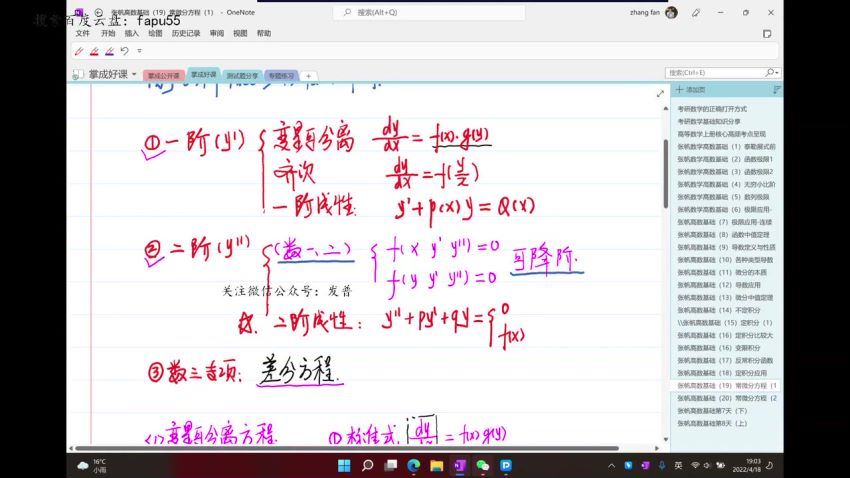 搜索百度云盘：fapu55
张帆高数基础（19）常微分方程（1） - OneNote
搜索(Alt+Q)
zhang fan
文件 开始 插入 绘图 历史记录 审阅 视图 帮助
掌成好课 掌成公开课 掌成好课 测试题分享 专题练习
搜索(Ctrl+E)
添加页
考研数学的正确打开方式
考研数学基础知识分享
高等数学上册核心高频考点呈现
张帆数学高数基础（1）泰勒展式前
张帆数学高数基础（2）函数极限1
张帆数学高数基础（3）函数极限2
张帆数学高数基础（4）无穷小比阶
张帆数学高数基础（5）数列极限
张帆数学高数基础（6）极限应用-
张帆高数基础（7）极限应用-连续
张帆高数基础（8）函数中值定理
张帆高数基础（9）导数定义与性质
张帆高数基础（10）各种类型导数
张帆高数基础（11）微分的本质
张帆高数基础（12）导数应用
张帆高数基础（13）微分中值定理
张帆高数基础（14）不定积分
\\张帆高数基础（15）定积分（1）
张帆高数基础（16）定积分比较大
张帆高数基础（16）变限积分
张帆高数基础（17）反常积分函数
张帆高数基础（18）定积分应用
张帆高数基础（19）常微分方程（1
张帆高数基础（20）常微分方程（2
张帆高数基础第7天（下）
张帆高数基础第8天（上）
①一阶(y') { 变量可分离 dy/dx = f(x)·g(y)
齐次 dy/dx = f(y/x)
一阶线性: y'+p(x)y=Q(x)
②二阶(y'') { (数一、二) { f(x y' y'')=0 可降阶.
f(y y' y'')=0
关注微信公众号：发普
☆. 二阶线性: y''+py'+qy= { 0
f(x)
③数三专项: 差分方程.
(1)变量可分离方程. ①标准式. dy/dx = f(x)g(y)
16°C
小雨
英
19:03
2022/4/18